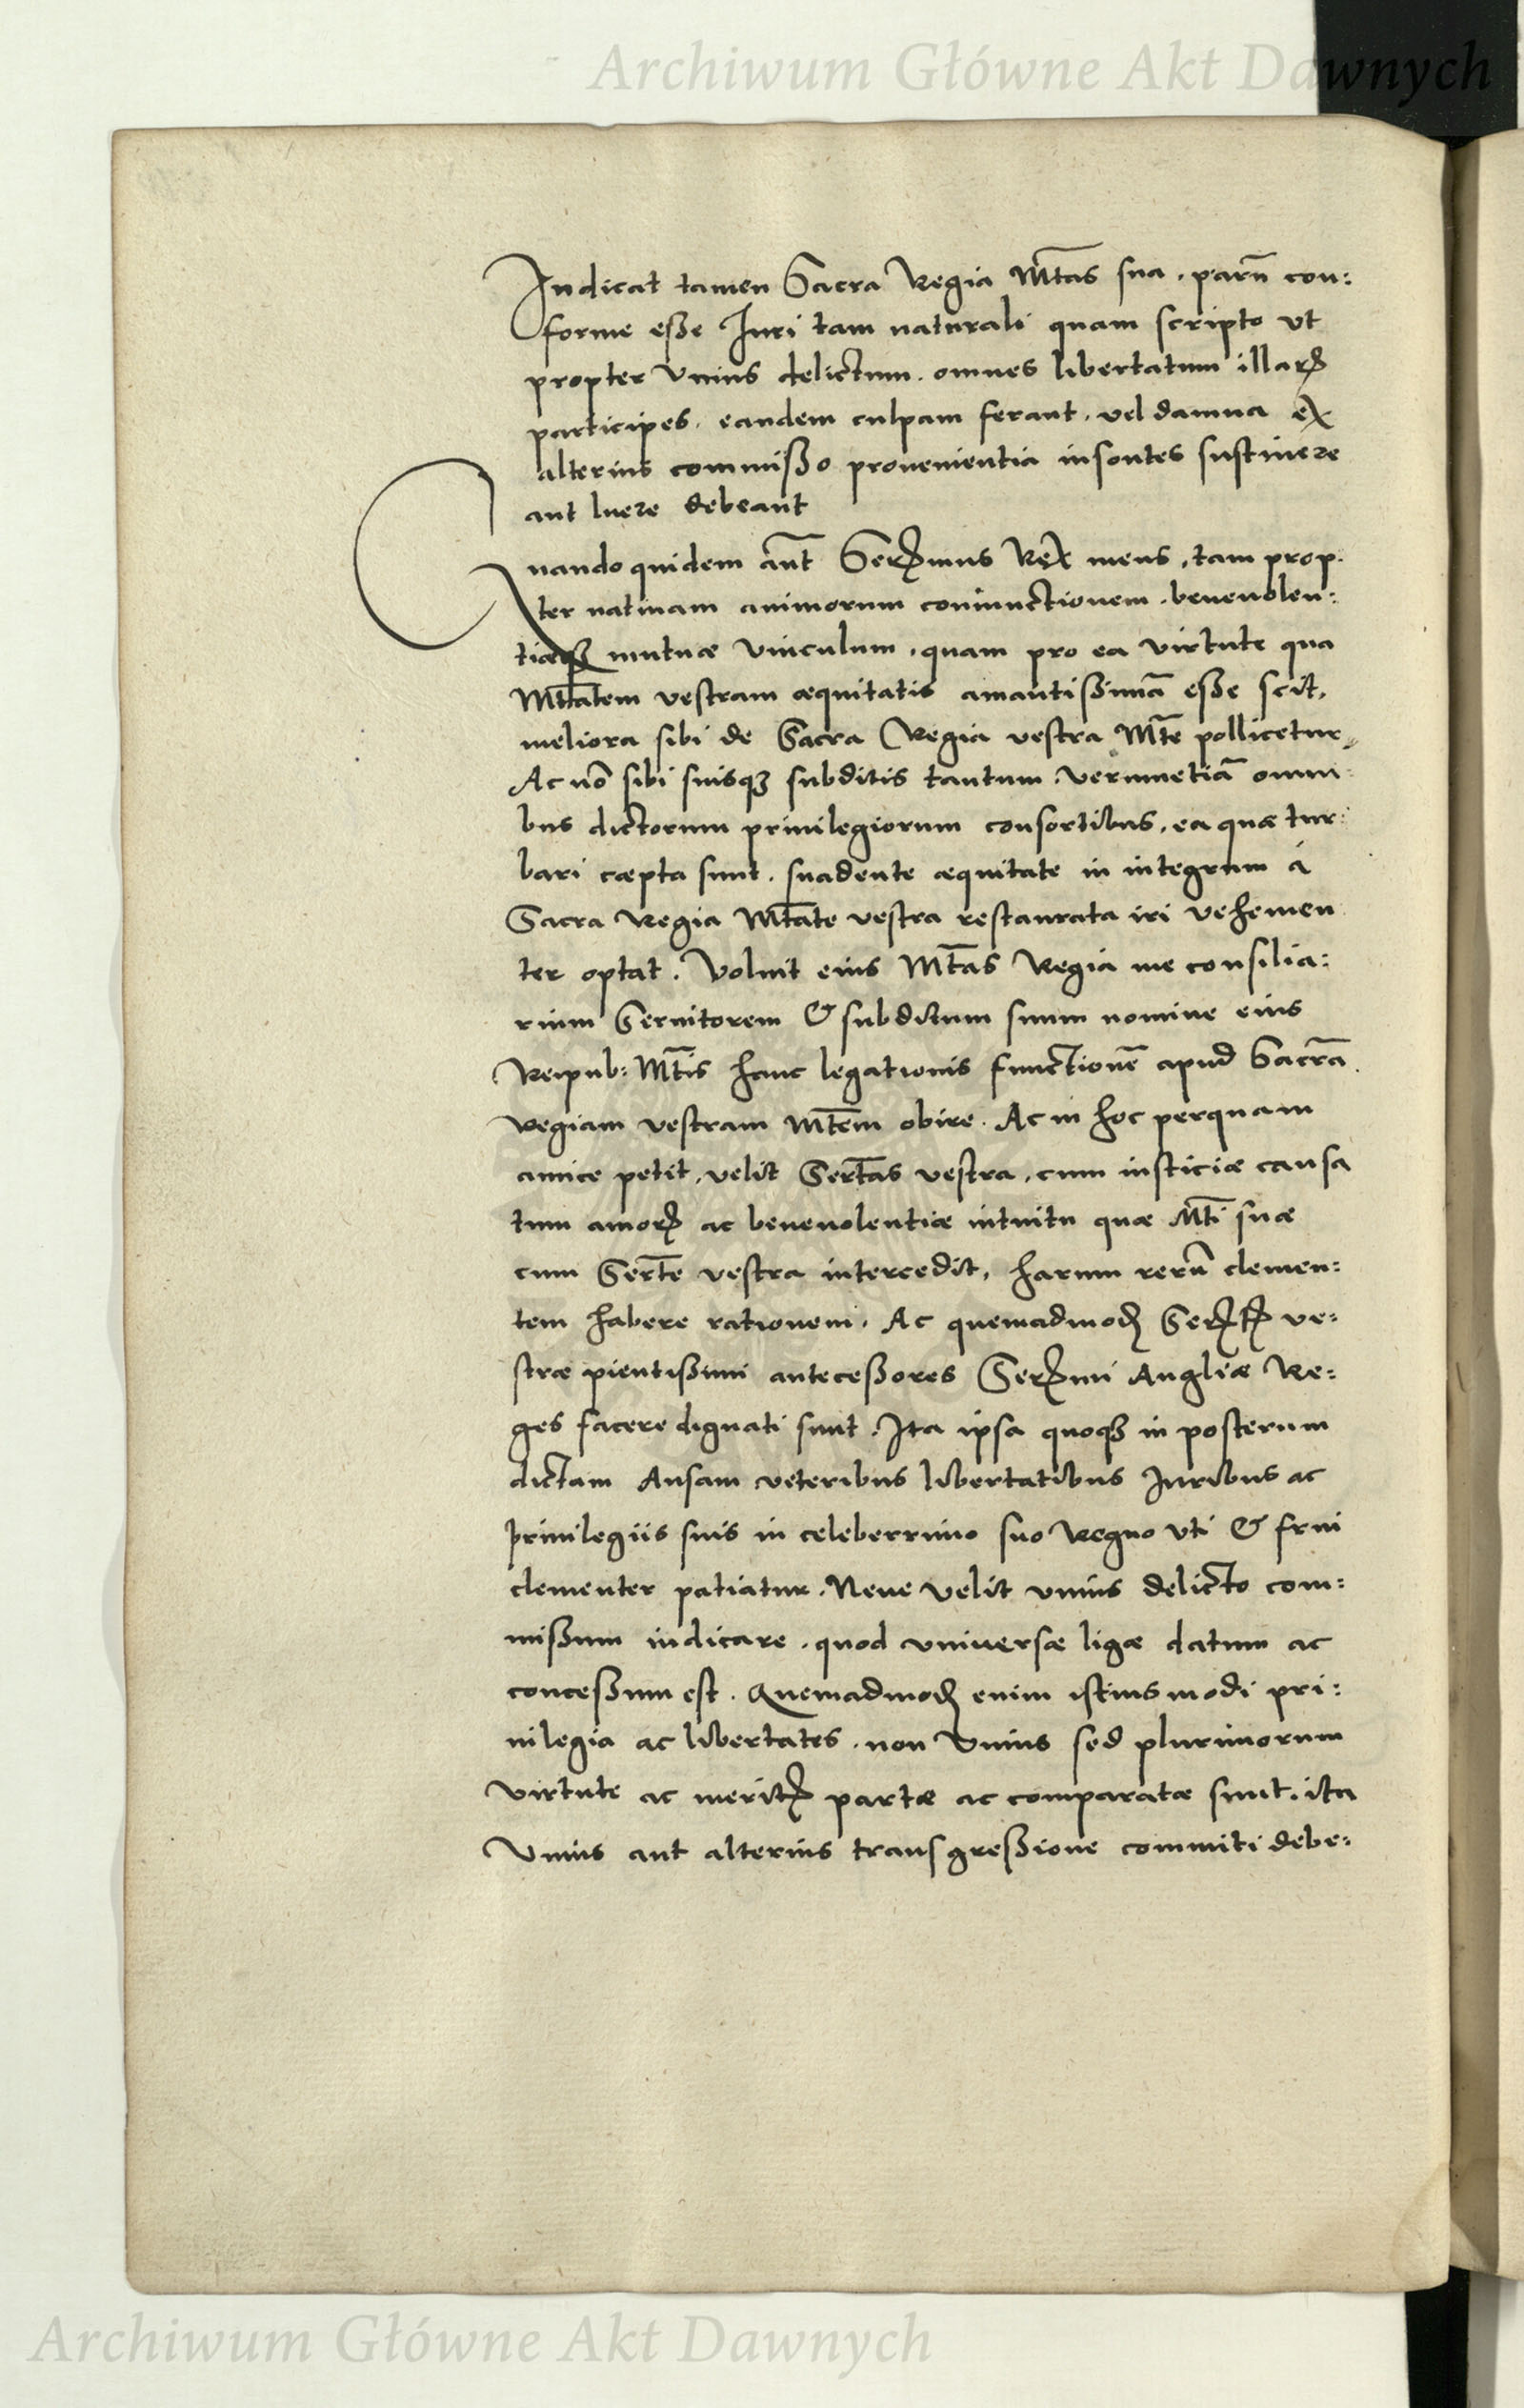 Archiwum Główne Akt Dawnych
Iudicat tamen Sacra Regia Mtas sua. parū con:
forme eße Iuri tam naturali quam scripto vt
propter vnius delictum. omnes libertatum illarꝝ
participes. eandem culpam ferant. vel damna ex
alterius commißo prouenientia insontes sustinere
aut luere debeant
Quandoquidem aūt Serꝫmus Rex meus, tam prop.
ter natiuam animorum coniunctionem. beneuolen:
tiæqꝫ mutuæ vinculum, quam pro ea virtute qua
Mtatem vestram æquitatis amantißimā eße scit,
meliora sibi de Sacra Regia vestra Mte pollicetur,
Ac nō sibi suisqꝫ subditis tantum. verumetiā omni:
bus dictorum priuilegiorum consortibus, ea quæ tur:
bari cæpta sunt. suadente æquitate in integrum á
Sacra Regia Mtate vestra restaurata iri vehemen
ter optat. Voluit eius Mtas Regia me consilia:
rium Seruitorem & subditum suum nomine eius
Reipub: Mtis hanc legationis functionē apud Sacrā
regiam vestram Mtem obire. Ac in hoc perquam
amice petit, velit Sertas vestra, cum iusticiæ causa
tum amorꝭ ac beneuolentiæ intuitu quæ Mti suæ
cum Serte vestra intercedit, harum rerū clemen:
tem habere rationem. Ac quemadmodꝫ Serꝫtꝭ ve:
stræ pientißimi anteceßores Serꝫmi Angliæ Re:
ges facere dignati sunt. Ita ipsa quoqꝫ in posterum
dictam Ansam veteribus libertatibus Iuribus ac
priuilegiis suis in celeberrimo suo Regno vti & frui
clementer patiatur. Neue velit vnius delicto com:
mißum iudicare. quod vniuersæ ligæ datum ac
conceßum est. Quemadmodꝫ enim istiusmodi pri:
uilegia ac libertates. non vnius sed plurimorum
virtute ac meritꝭ partæ ac comparatæ sunt. ita
vnius aut alterius transgreßione committi debe:
Archiwum Główne Akt Dawnych